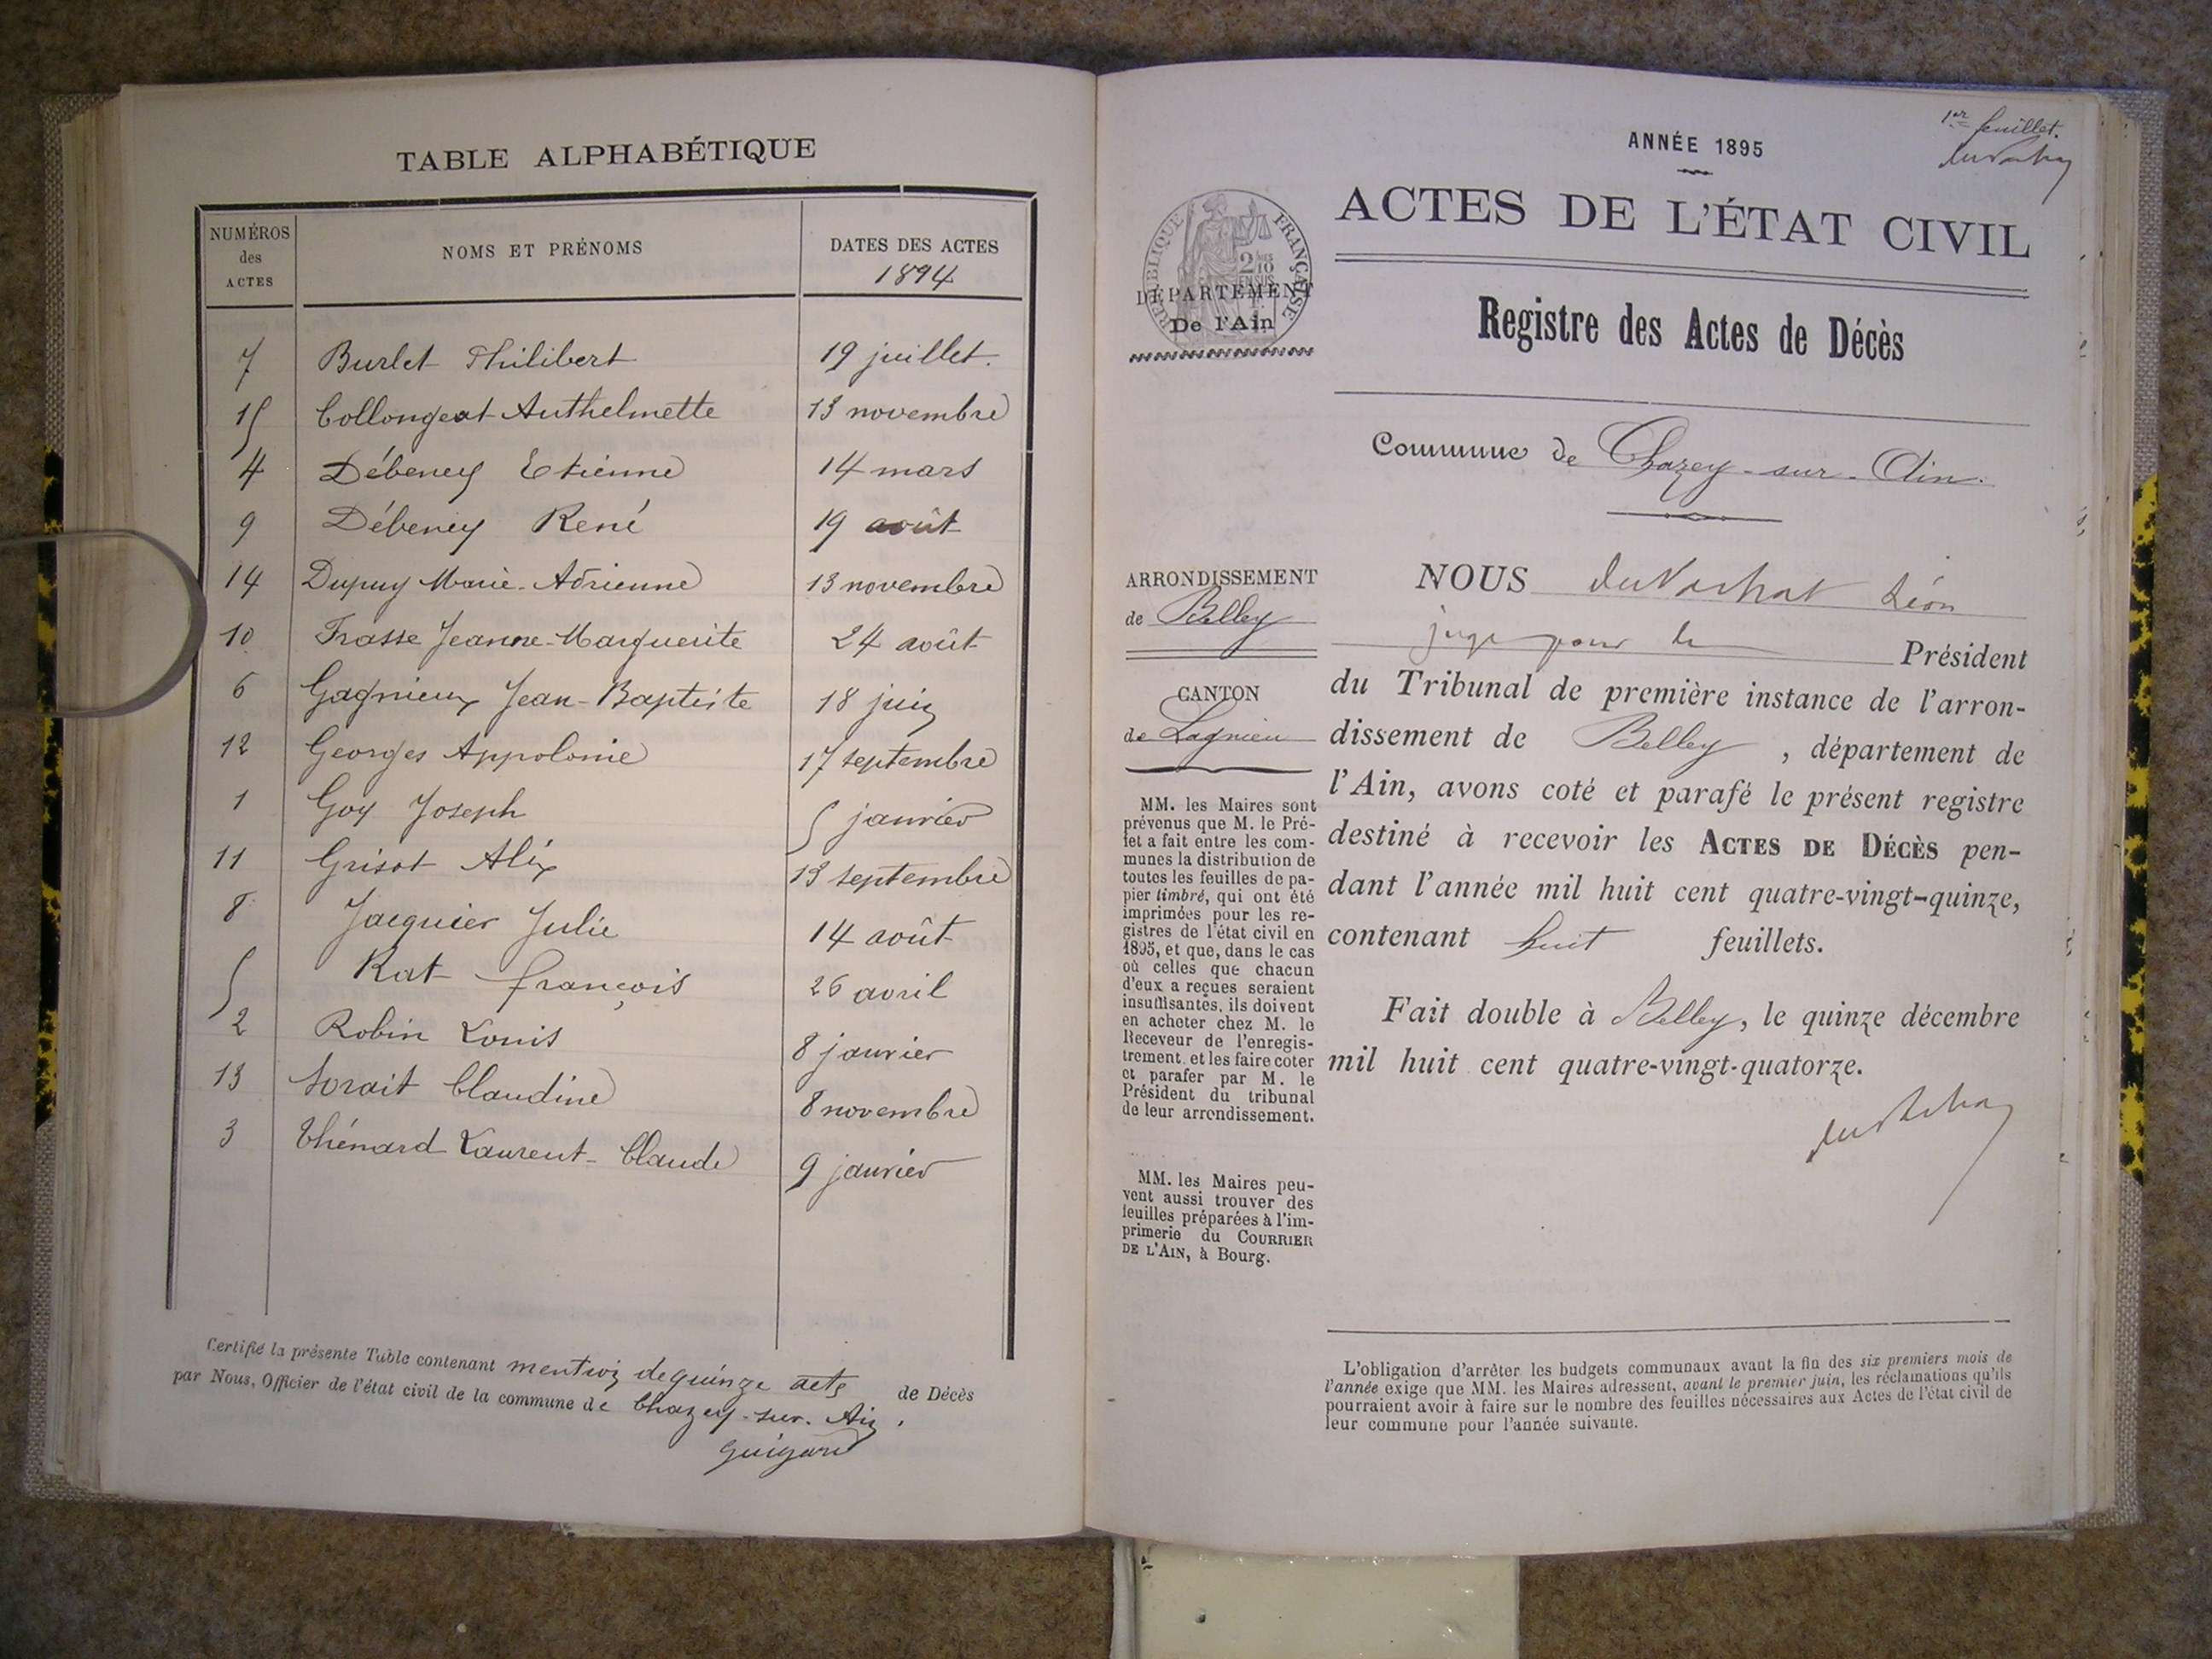 TABLE ALPHABÉTIQUE
NUMÉROS des ACTES
NOMS ET PRÉNOMS
DATES DES ACTES
1894
7 Burlet Philibert 19 juillet.
15 Collongeat Anthelmette 13 novembre
4 Débeney Etienne 14 mars
9 Débeney René 19 août
14 Dupuy Marie-Adrienne 13 novembre
10 Frasse Jeanne-Marguerite 24 août
6 Gagnieux Jean-Baptiste 18 juin
12 Georges Appolonie 17 septembre
1 Goy Joseph 5 janvier
11 Grisot Alix 13 septembre
8 Jacquier Julie 14 août
5 Rat françois 26 avril
2 Robin Louis 8 janvier
13 Sorait Claudine 8 novembre
3 Thénard Laurent-Claude 9 janvier
Certifié la présente Table contenant mention de quinze acts de Décès
par Nous, Officier de l'état civil de la commune de Chazey-sur-Ain,
Guigard
1er feuillet.
ANNÉE 1895
ACTES DE L'ÉTAT CIVIL
RÉPUBLIQUE FRANÇAISE
DÉPARTEMENT
De l'Ain
Registre des Actes de Décès
Commune de Chazey-sur-Ain.
ARRONDISSEMENT
de Belley
CANTON
de Lagnieu
MM. les Maires sont
prévenus que M. le Pré-
fet a fait entre les com-
munes la distribution de
toutes les feuilles de pa-
pier timbré, qui ont été
imprimées pour les re-
gistres de l'état civil en
1895, et que, dans le cas
où celles que chacun
d'eux a reçues seraient
insuffisantes, ils doivent
en acheter chez M. le
Receveur de l'enregis-
trement et les faire coter
et parafer par M. le
Président du tribunal
de leur arrondissement.
MM. les Maires peu-
vent aussi trouver des
feuilles préparées à l'im-
primerie du COURRIER
DE L'AIN, à Bourg.
NOUS duVachat Léon
juge pour le Président
du Tribunal de première instance de l'arron-
dissement de Belley, département de
l'Ain, avons coté et parafé le présent registre
destiné à recevoir les ACTES DE DÉCÈS pen-
dant l'année mil huit cent quatre-vingt-quinze,
contenant huit feuillets.
Fait double à Belley, le quinze décembre
mil huit cent quatre-vingt-quatorze.
L'obligation d'arrêter les budgets communaux avant la fin des six premiers mois de
l'année exige que MM. les Maires adressent, avant le premier juin, les réclamations qu'ils
pourraient avoir à faire sur le nombre des feuilles nécessaires aux Actes de l'état civil de
leur commune pour l'année suivante.